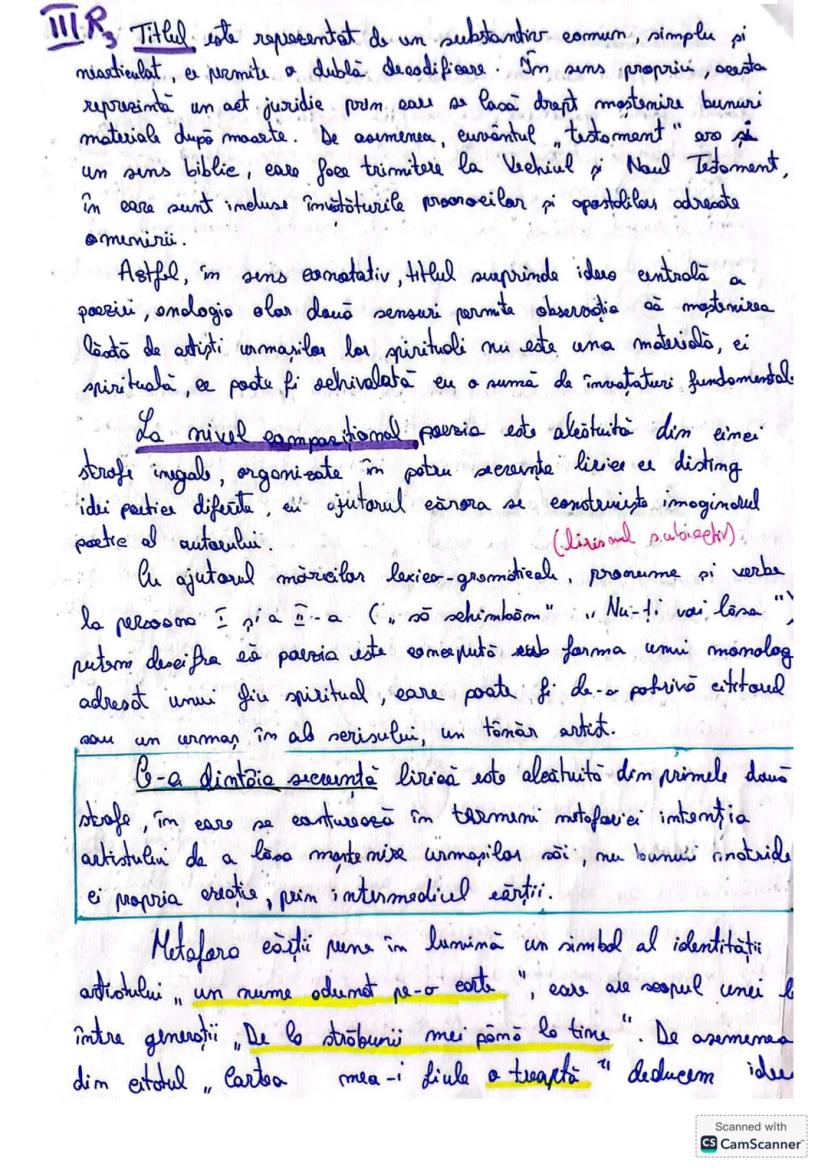 III.R₃ Titlul este reprezentat de un substantiv comun, simplu și
nearticulat, ce permite o dublă decodificare. În sens propriu, acesta
reprezintă un act juridic prin care se lasă drept moștenire bunuri
materiale după moarte. De asemenea, cuvântul „testament" are și
un sens biblic, care face trimitere la Vechiul și Noul Testament,
în care sunt incluse învățăturile proorocilor și apostolilor adresate
omenirii.
Astfel, în sens conotativ, titlul surprinde ideea centrală a
poeziei, analogia celor două sensuri permite observația că moștenirea
lăsată de artiști urmașilor lor spirituali nu este una materială, ci
spirituală, ce poate fi echivalată cu o sumă de învățaturi fundamental
La nivel compozițional poezia este alcătuită din cinci
strofe inegale, organizate în patru secvențe lirice ce disting
idei poetice diferite, cu ajutorul cărora se construiește imaginarul
poetic al autorului. (lirismul subiectiv)
Cu ajutorul mărcilor lexico-gramaticale, pronume și verbe
la persoana I și a II-a („să schimbăm" „Nu-ți voi lăsa")
putem descifra că poezia este concepută sub forma unui monolog
adresat unui fiu spiritual, care poate fi de-o potrivă cititorul
sau un urmaș în ale scrisului, un tânăr artist.
C-a dintâia secvență lirică este alcătuită din primele două
strofe, în care se conturează în termeni metaforici intenția
artistului de a lăsa moștenire urmașilor săi, nu bunuri materiale
ci propria creație, prin intermediul cărții.
Metafora cărții pune în lumină un simbol al identității
artistului „un nume adunat pe-o carte", care are scopul unei l
între generații „De la străbunii mei până la tine". De asemenea
din citatul „Cartea mea-i fiule o treaptă" deducem idee
Scanned with
CS CamScanner